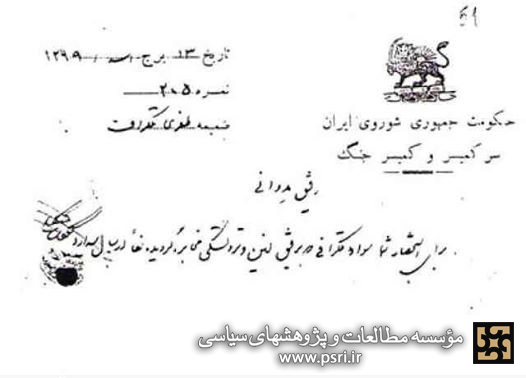 61
تاریخ ۱۳ برج اسد ۱۲۹۹
نمره ۲۰۵
ضمیمه طغری تلگراف
حکومت جمهوری شوروی ایران
سر کمیسر و کمیسر جنگ
رفیق مدیوانی
برای استحضار شما سواد تلگرافی که به رفیق لنین و تروتسکی مخابره گردیده لفاً ارسال میدارد
مؤسسه مطالعات و پژوهشهای سیاسی
www.psri.ir